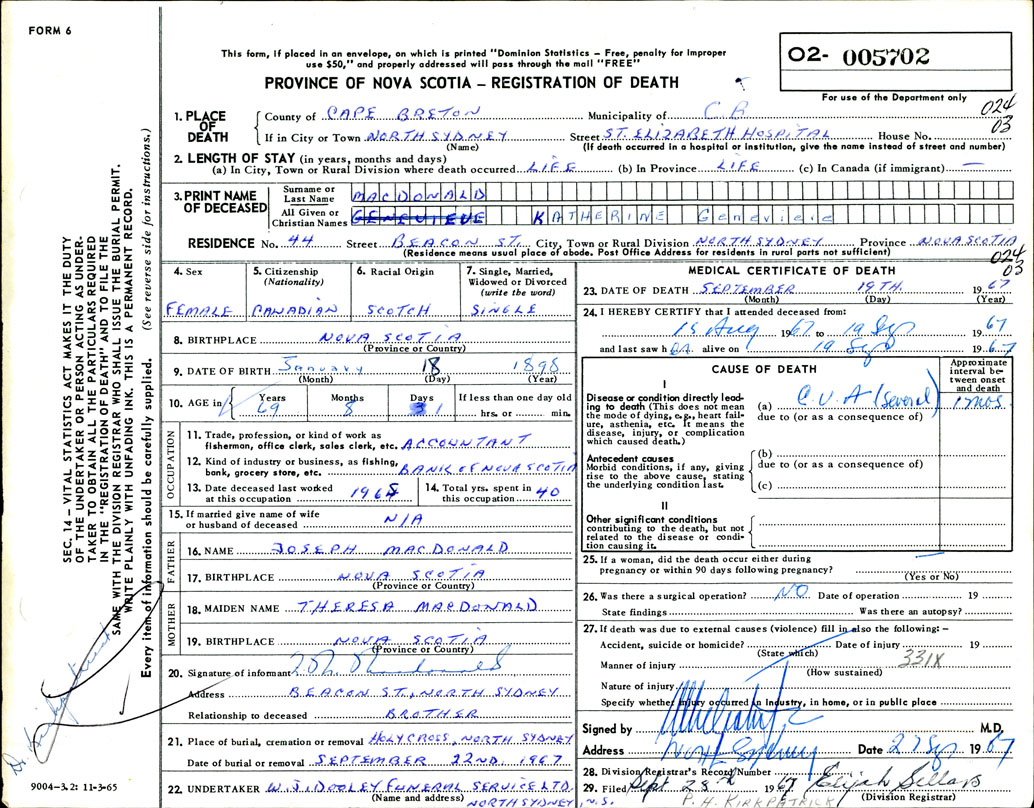 FORM 6
This form, if placed in an envelope, on which is printed "Dominion Statistics – Free, penalty for improper
use $50," and properly addressed will pass through the mail "FREE"
O2- 005702
PROVINCE OF NOVA SCOTIA – REGISTRATION OF DEATH
For use of the Department only
024
03
1. PLACE OF DEATH
County of CAPE BRETON Municipality of C.B
If in City or Town NORTH SYDNEY Street ST. ELIZABETH HOSPITAL House No.
(Name) (If death occurred in a hospital or institution, give the name instead of street and number)
2. LENGTH OF STAY (in years, months and days)
(a) In City, Town or Rural Division where death occurred LIFE (b) In Province LIFE (c) In Canada (if immigrant) —
3. PRINT NAME OF DECEASED
Surname or Last Name MACDONALD
All Given or Christian Names GENEVIEVE KATHERINE Genevieve
RESIDENCE No. 44 Street BEACON ST. City, Town or Rural Division NORTH SYDNEY Province NOVA SCOTIA
(Residence means usual place of abode. Post Office Address for residents in rural parts not sufficient)
024
03
4. Sex
FEMALE
5. Citizenship (Nationality)
CANADIAN
6. Racial Origin
SCOTCH
7. Single, Married, Widowed or Divorced (write the word)
SINGLE
8. BIRTHPLACE NOVA SCOTIA
(Province or Country)
9. DATE OF BIRTH January 18 1898
(Month) (Day) (Year)
10. AGE in Years Months Days If less than one day old
69 8 1 hrs. or min.
OCCUPATION
11. Trade, profession, or kind of work as
fisherman, office clerk, sales clerk, etc. ACCOUNTANT
12. Kind of industry or business, as fishing,
bank, grocery store, etc. BANK OF NOVA SCOTIA
13. Date deceased last worked at this occupation 196
14. Total yrs. spent in this occupation 40
15. If married give name of wife
or husband of deceased N/A
FATHER
16. NAME JOSEPH MACDONALD
17. BIRTHPLACE NOVA SCOTIA
(Province or Country)
MOTHER
18. MAIDEN NAME THERESA MACDONALD
19. BIRTHPLACE NOVA SCOTIA
(Province or Country)
20. Signature of informant
Address BEACON ST., NORTH SYDNEY
Relationship to deceased BROTHER
21. Place of burial, cremation or removal HOLY CROSS, NORTH SYDNEY
Date of burial or removal SEPTEMBER 22ND, 1967
22. UNDERTAKER W.J. DOOLEY FUNERAL SERVICE LTD.
(Name and address) NORTH SYDNEY, N.S.
MEDICAL CERTIFICATE OF DEATH
23. DATE OF DEATH SEPTEMBER 19TH. 1967
(Month) (Day) (Year)
24. I HEREBY CERTIFY that I attended deceased from:
15 Aug 1967 to 19 Sep 1967
and last saw her alive on 19 Sep 1967
CAUSE OF DEATH
Approximate interval between onset and death
I
Disease or condition directly leading to death (This does not mean the mode of dying, e.g., heart failure, asthenia, etc. It means the disease, injury, or complication which caused death.)
(a) C.V.A. (several) 1 mos
due to (or as a consequence of)
Antecedent causes
Morbid conditions, if any, giving rise to the above cause, stating the underlying condition last.
(b)
due to (or as a consequence of)
(c)
II
Other significant conditions
contributing to the death, but not related to the disease or condition causing it.
25. If a woman, did the death occur either during
pregnancy or within 90 days following pregnancy? —
(Yes or No)
26. Was there a surgical operation? NO Date of operation 19
State findings Was there an autopsy?
27. If death was due to external causes (violence) fill in also the following: –
Accident, suicide or homicide? Date of injury 19
(State which) 331X
Manner of injury
(How sustained)
Nature of injury
Specify whether injury occurred in industry, in home, or in public place
Signed by M.D.
Address North Sydney Date 27 Sep 1967
28. Division Registrar's Record Number
29. Filed Sept 28th 1967 Elijah Sellars
P. H. KIRKPATRICK (Division Registrar)
SEC. 14 – VITAL STATISTICS ACT MAKES IT THE DUTY
OF THE UNDERTAKER OR PERSON ACTING AS UNDER-
TAKER TO OBTAIN ALL THE PARTICULARS REQUIRED
IN THE "REGISTRATION OF DEATH" AND TO FILE THE
SAME WITH THE DIVISION REGISTRAR WHO SHALL ISSUE THE BURIAL PERMIT.
WRITE PLAINLY WITH UNFADING INK. THIS IS A PERMANENT RECORD.
Every item of information should be carefully supplied. (See reverse side for instructions.)
9004–3.2: 11-3-65